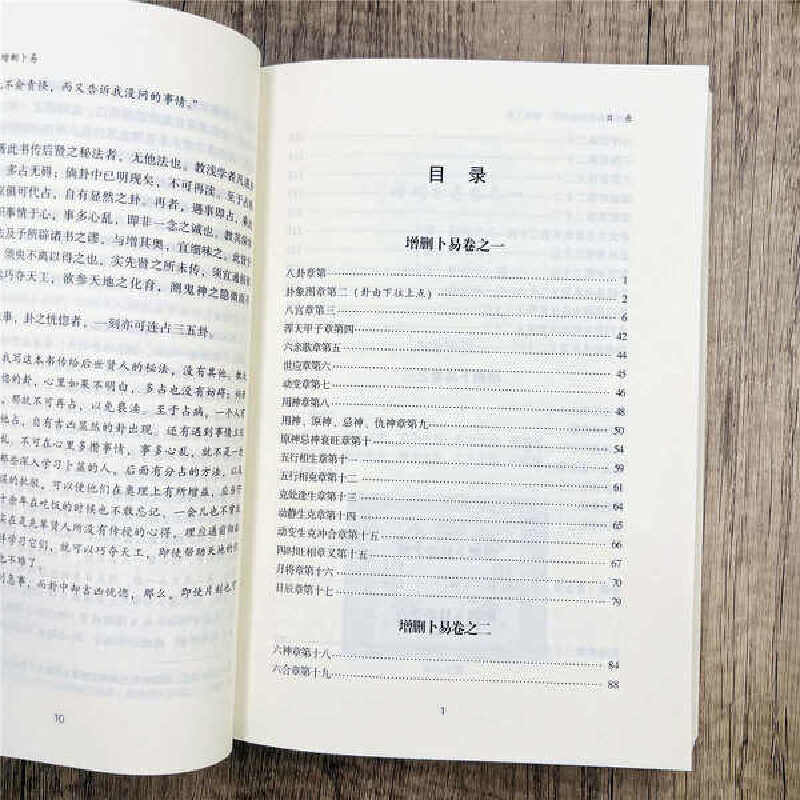 增删卜易
不会责怪，而又告诉我没问的事情。”
此书传后贤之秘法者，无他法也。教浅学者凡
多占无碍；倘卦中已明现矣，不可再渎。至于占病
俱可代占，自有显然之卦。再者，遇事即占，
事情于心，事多心乱，即非一念之诚也。
及予所辟诸书之谬，与增其奥，宜细味之。
须臾不离以得之也。实先贤之所未传，须
巧夺天工，欲参天地之化育，测鬼神之隐微
事，卦之恍惚者，一刻亦可连占三五卦。
我写这本书传给后世贤人的秘法，没有其他。
的卦，心里如果不明白，多占也没有妨碍；
那就不可再占，以免亵渎。至于占病，一个人
占，自有吉凶显然的卦出现。还有遇到事情
，不可在心里多攒事情，事多心乱，就不是
那些深入学习卜筮的人。后面有分占的方法，以及
的欺骗，可以使他们在奥理上有所增益，应当
十余年在吃饭的时候也不敢忘记，一会儿也不
实在是先辈贤人所没有传授的心得，理应通前
学习它们，就可以巧夺天工，即使帮助天地
也不难了。
急事，而卦中却吉凶恍惚，那么，即使片刻也
10
目 录
目 录
增删卜易卷之一
八卦章第一 1
卦象图章第二（卦由下往上点） 2
八宫章第三 6
浑天甲子章第四 42
六亲歌章第五 44
世应章第六 45
动变章第七 46
用神章第八 48
用神、原神、忌神、仇神章第九 50
原神忌神衰旺章第十 54
五行相生章第十一 59
五行相克章第十二 61
克处逢生章第十三 64
动静生克章第十四 65
动变生克冲合章第十五 66
四时旺相章又第十五 67
月将章第十六 70
日辰章第十七 79
增删卜易卷之二
六神章第十八 84
六合章第十九 88
1